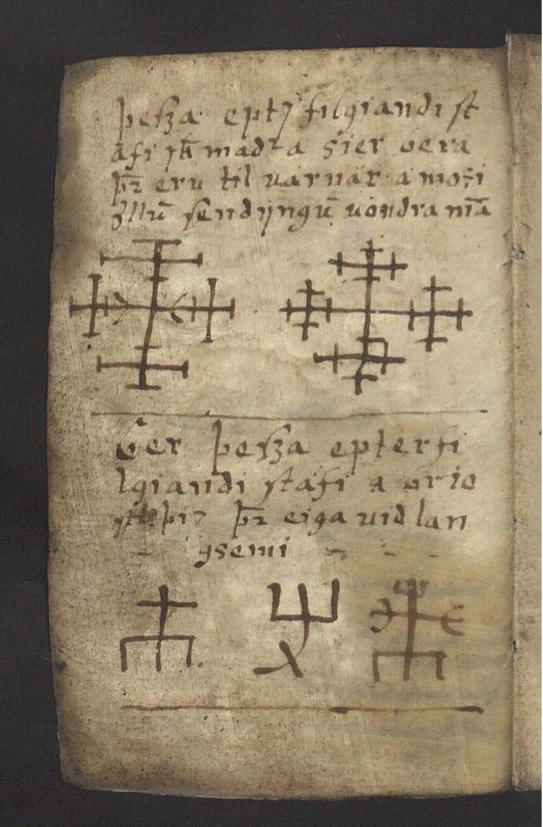 þessa epter filgiandi st
afi sk madr a sier bera
þr eru til varnar a moti
ollū sendijngū vondra mā
Ber þessa epterfi
lgiandi stafi a brio
sti þier þr eiga vid lan
gsemi